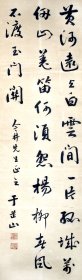 黄河遠上白雲間一片孤城萬
仞山羌笛何須怨楊柳春風
不渡玉門關 先生正之 于芷山